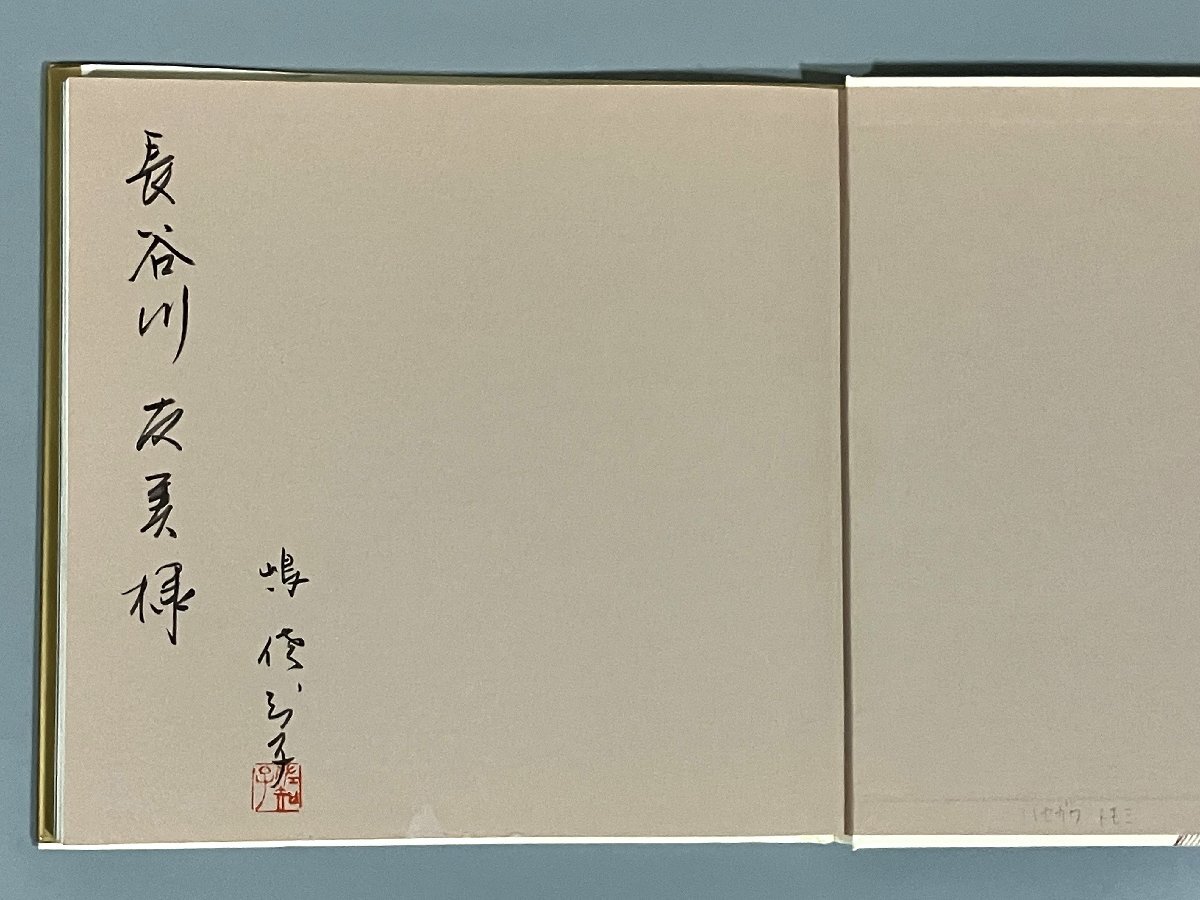 長谷川 友美様
嶋 佐知子
ハセガワ トモミ